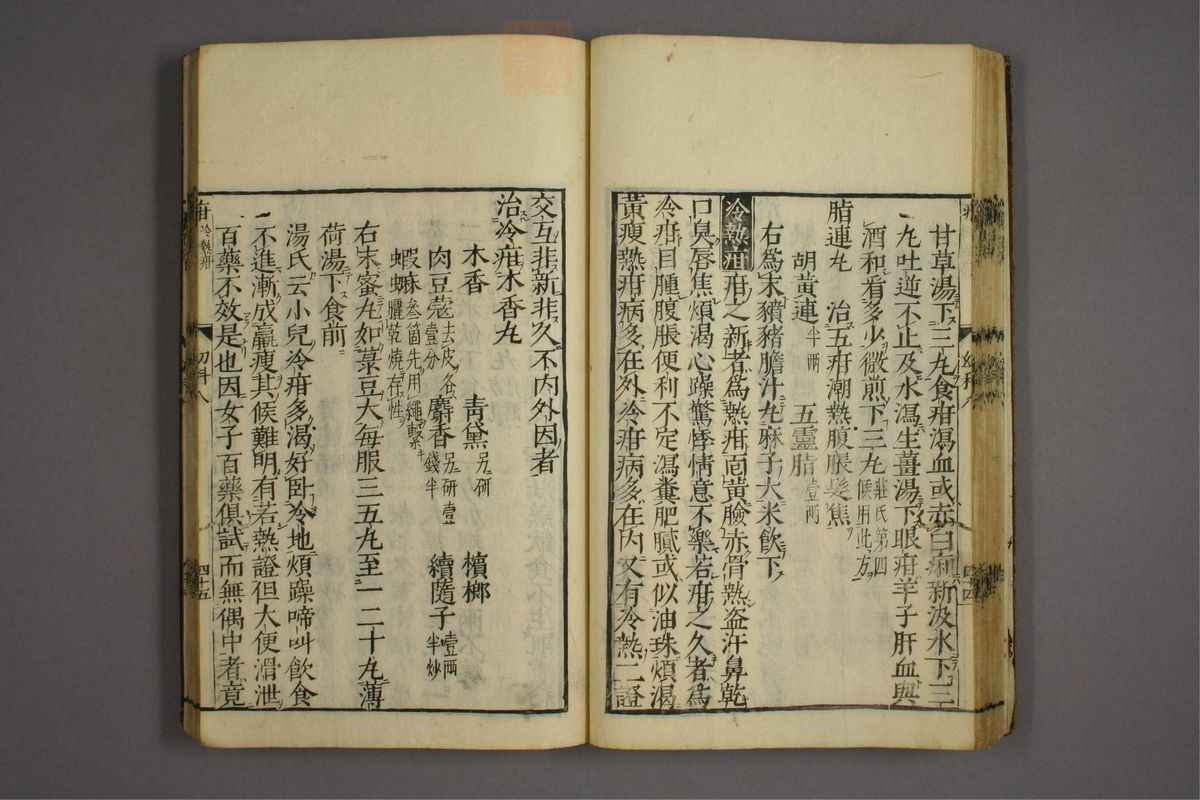 甘草湯下三丸食疳瀉血或赤白痢新汲水下三
丸吐逆不止及水瀉生薑湯下眼疳羊子肝血與
酒和看多少微煎下三丸莊氏第四候用此方
脂連丸 治五疳潮熱腹脹髮焦
胡黃連半兩 五靈脂壹兩
右為末豶豬膽汁丸麻子大米飲下
冷熱疳疳之新者為熱疳面黃臉赤骨熱盜汗鼻乾
口臭唇焦煩渴心躁驚悸情意不樂若疳之久者為
冷疳目腫腹脹便利不定瀉糞肥膩或似油珠煩渴
黃瘦熱疳病多在外冷疳病多在內又有冷熱二證
交互非新非久不內外因者
治冷疳木香丸
木香 青黛另研 檳榔
肉豆蔻去皮各壹分 麝香另研壹錢半 續隨子壹兩半炒
蝦蟆叁箇先用繩繫晒乾燒存性
右末蜜丸如菉豆大每服三五丸至一二十丸薄
荷湯下食前
湯氏云小兒冷疳多渴好臥冷地煩躁啼叫飲食
不進漸成羸瘦其候難明有若熱證但大便滑泄
百藥不效是也因女子百藥俱試而無偶中者竟
疳 冷熱疳
幼科八
四十五
幼科八
四十四